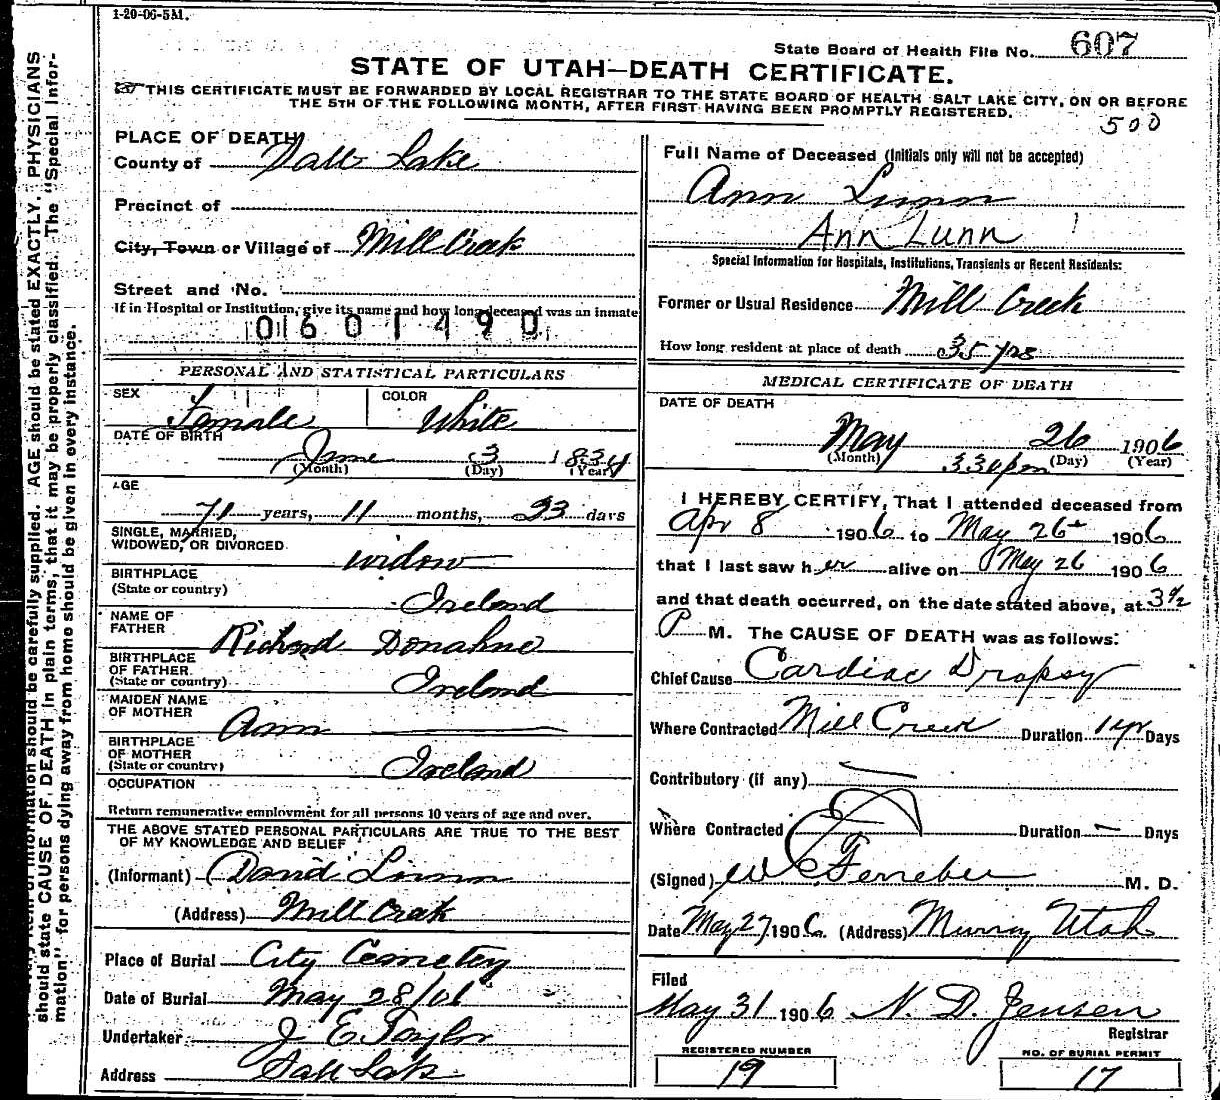 1-20-06-5M.
State Board of Health File No. 607
STATE OF UTAH—DEATH CERTIFICATE.
THIS CERTIFICATE MUST BE FORWARDED BY LOCAL REGISTRAR TO THE STATE BOARD OF HEALTH SALT LAKE CITY, ON OR BEFORE
THE 5TH OF THE FOLLOWING MONTH, AFTER FIRST HAVING BEEN PROMPTLY REGISTERED.
500
PLACE OF DEATH
County of Salt Lake
Precinct of
City, Town or Village of Mill Creek
Street and No.
If in Hospital or Institution, give its name and how long deceased was an inmate
0601490
PERSONAL AND STATISTICAL PARTICULARS
SEX Female COLOR White
DATE OF BIRTH June 3 1834
(Month) (Day) (Year)
AGE
71 years, 11 months, 23 days
SINGLE, MARRIED,
WIDOWED, OR DIVORCED widow
BIRTHPLACE
(State or country) Ireland
NAME OF
FATHER Richard Donahue
BIRTHPLACE
OF FATHER
(State or country) Ireland
MAIDEN NAME
OF MOTHER Ann
BIRTHPLACE
OF MOTHER
(State or country) Ireland
OCCUPATION
Return remunerative employment for all persons 10 years of age and over.
THE ABOVE STATED PERSONAL PARTICULARS ARE TRUE TO THE BEST
OF MY KNOWLEDGE AND BELIEF
(Informant) David
(Address) Mill Creek
Place of Burial City Cemetery
Date of Burial May 28/06
Undertaker J E Taylor
Address Salt Lake
Full Name of Deceased (Initials only will not be accepted)
Ann Lunn
Ann Lunn
Special Information for Hospitals, Institutions, Transients or Recent Residents:
Former or Usual Residence Mill Creek
How long resident at place of death 35 yrs
MEDICAL CERTIFICATE OF DEATH
DATE OF DEATH
May 26 1906
(Month) 330 pm (Day) (Year)
I HEREBY CERTIFY, That I attended deceased from
Apr 8 1906 to May 26 1906
that I last saw her alive on May 26 1906
and that death occurred, on the date stated above, at 3 1/2
P M. The CAUSE OF DEATH was as follows:
Chief Cause Cardiac Dropsy
Where Contracted Mill Creek Duration 1 yr Days
Contributory (if any)
Where Contracted Duration — Days
(Signed) M. D.
Date May 27 1906 (Address) Murray Utah
Filed
May 31 1906 N. D. Jensen
Registrar
REGISTERED NUMBER
19
NO. OF BURIAL PERMIT
17
information should be carefully supplied. AGE should be stated EXACTLY. PHYSICIANS
should state CAUSE OF DEATH in plain terms, that it may be properly classified. The "Special Infor-
mation" for persons dying away from home should be given in every instance.